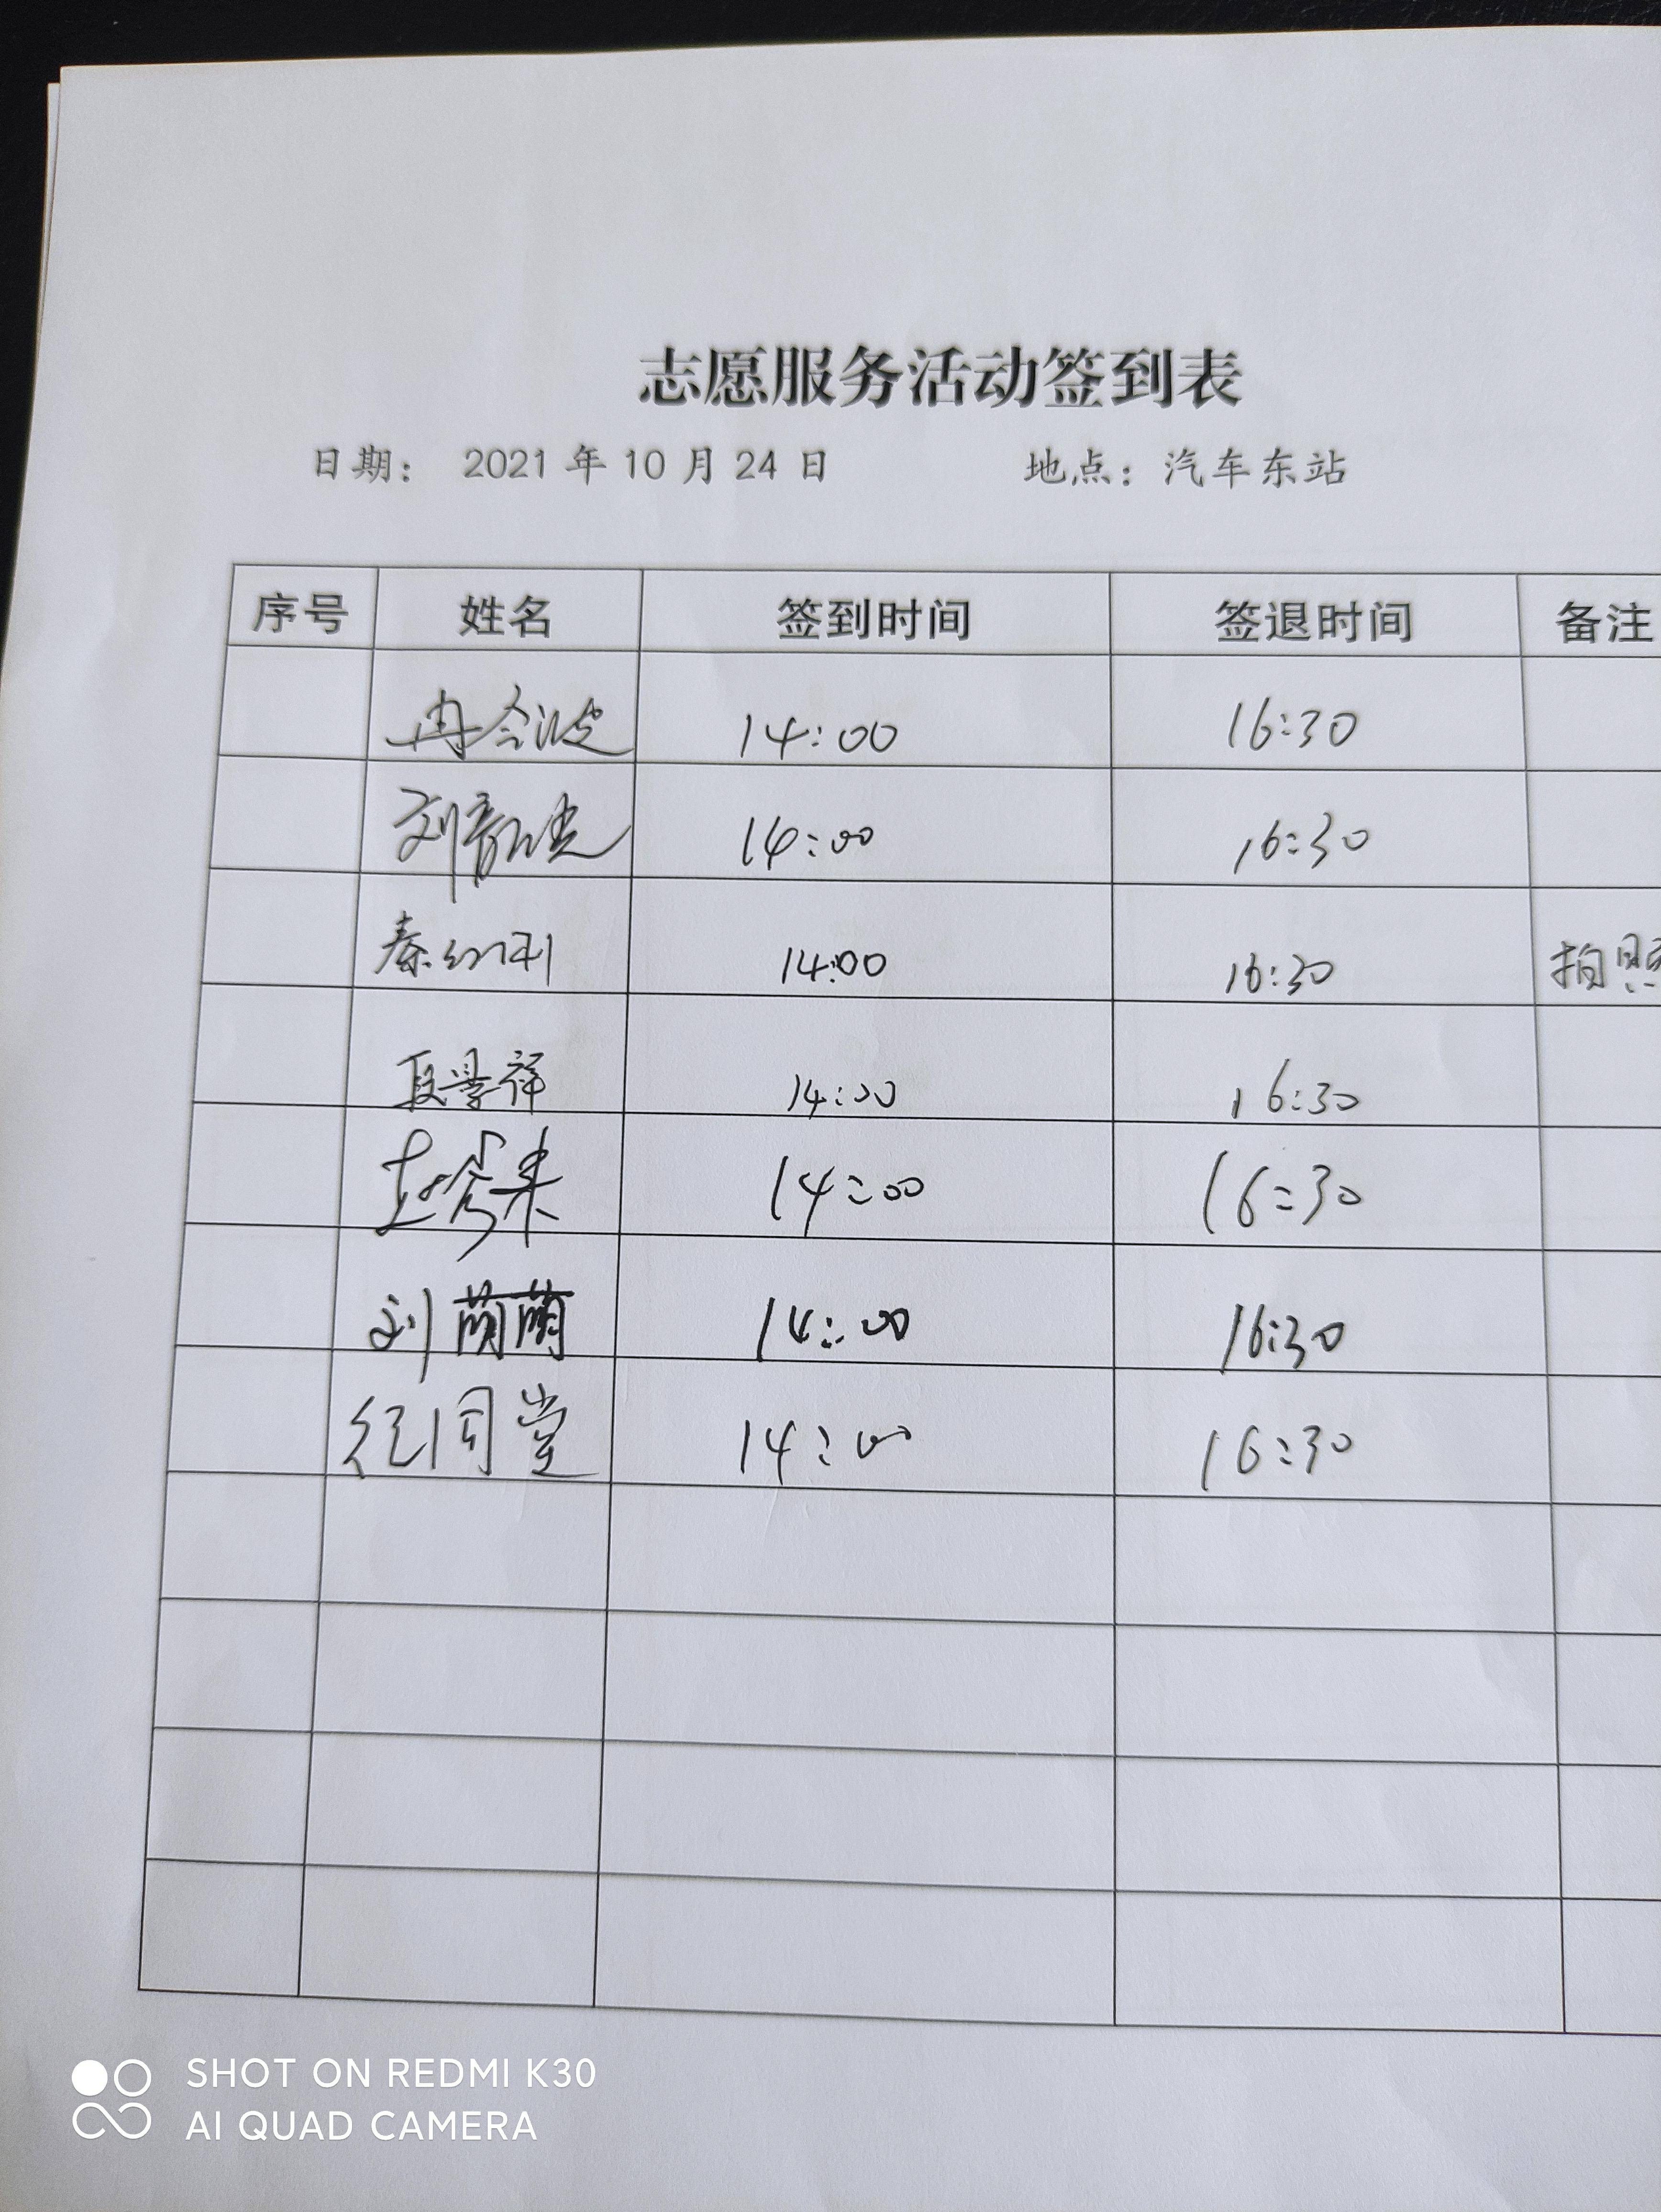 志愿服务活动签到表
日期： 2021 年 10 月 24 日 地点：汽车东站
序号 姓名 签到时间 签退时间 备注
冉令波 14:00 16:30
刘 14:00 16:30
秦红利 14:00 16:30 拍照
段景祥 14:00 16:30
赵 来 14:00 16:30
刘萌萌 14:00 16:30
纪同堂 14:00 16:30
SHOT ON REDMI K30
AI QUAD CAMERA